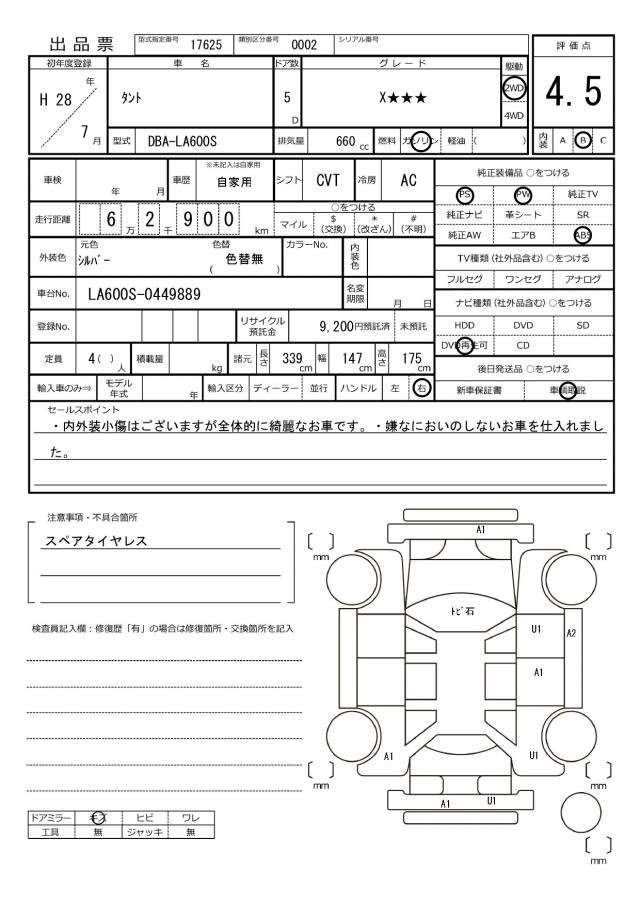 出品票 型式指定番号 17625 類別区分番号 0002 シリアル番号
評価点
初年度登録 車名 ドア数 グレード 駆動
H 28 年 7 月 タント 5 D X★★★ 2WD 4WD 4.5
型式 DBA-LA600S 排気量 660 cc 燃料 ガソリン 軽油 ( ) 内装 A B C
車検 年 月 車歴 ※未記入は自家用 自家用 シフト CVT 冷房 AC
純正装備品 ○をつける
PS PW 純正TV
走行距離 6 万 2 千 9 0 0 km ○をつける
マイル $ (交換) * (改ざん) # (不明)
純正ナビ 革シート SR
純正AW エアB ABS
外装色 元色 シルバー 色替 色替無 ( ) カラーNo. 内装色
TV種類 (社外品含む) ○をつける
フルセグ ワンセグ アナログ
車台No. LA600S-0449889 名変期限 月 日
ナビ種類 (社外品含む) ○をつける
登録No. リサイクル預託金 9,200円預託済 未預託
HDD DVD SD
DVD再生可 CD
定員 4 ( ) 人 積載量 kg 諸元 長さ 339 cm 幅 147 cm 高さ 175 cm
後日発送品 ○をつける
輸入車のみ⇒ モデル年式 年 輸入区分 ディーラー 並行 ハンドル 左 右
新車保証書 車輌取説
セールスポイント
・内外装小傷はございますが全体的に綺麗なお車です。・嫌なにおいのしないお車を仕入れまし
た。
注意事項・不具合箇所
スペアタイヤレス
検査員記入欄：修復歴「有」の場合は修復箇所・交換箇所を記入
A1
mm mm
トビ石
U1 A2
A1
A1 U1
mm mm
A1 U1
mm
ドアミラー キズ ヒビ ワレ
工具 無 ジャッキ 無